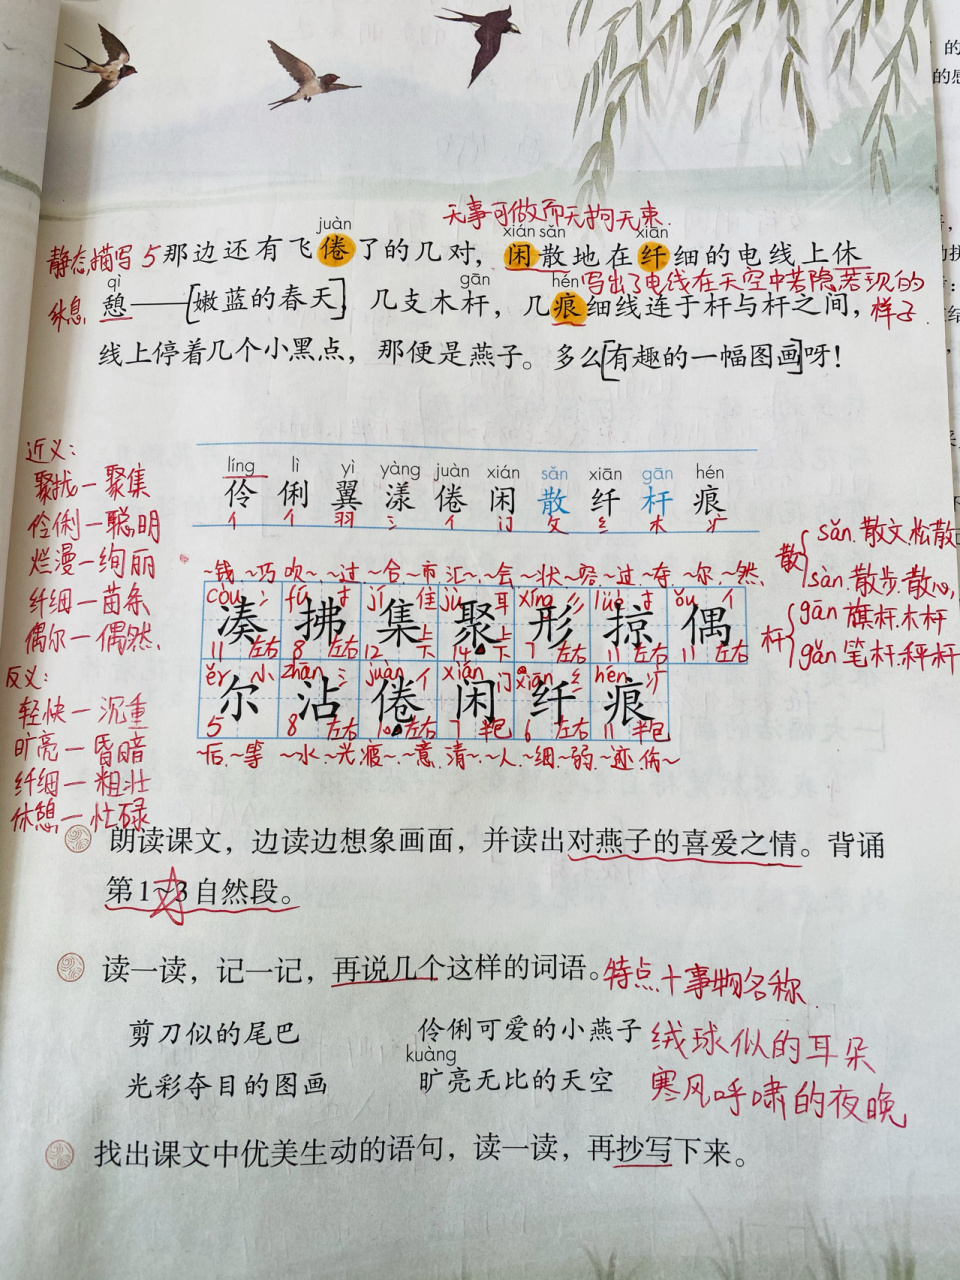 无事可做而无拘无束.
juàn xián sǎn xiān
静态描写 5 那边还有飞倦了的几对，闲散地在纤细的电线上休
qì gān hén 写出了电线在天空中若隐若现的
休息. 憩——[嫩蓝的春天]，几支木杆，几痕细线连于杆与杆之间， 样子
线上停着几个小黑点，那便是燕子。多么[有趣的一幅图画]呀！
líng lì yì yàng juàn xián sǎn xiān gān hén
伶 俐 翼 漾 倦 闲 散 纤 杆 痕
亻 亻 羽 氵 亻 门 攵 纟 木 疒
近义：
聚拢—聚集
伶俐—聪明
烂漫—绚丽
纤细—苗条
偶尔—偶然.
反义：
轻快—沉重
旷亮—昏暗
纤细—粗壮
休憩—忙碌
散{ sǎn. 散文.松散
sàn. 散步.散心.
杆{ gān 旗杆.木杆
gǎn 笔杆.秤杆
~钱.~巧 吹~.~过 ~合~市 汇~.~会 ~状~容 ~过~夺 ~尔~然.
còu 氵 fú 扌 jí 隹 jù 耳 xíng 彡 lüè 扌 ǒu 亻
凑 拂 集 聚 形 掠 偶
11 左右 8 左右 12 上下 14 上下 7 左右 11 左右 11 左右
ěr 小 zhān 氵 juàn 亻 xián 门 xiān 纟 hén 疒
尔 沾 倦 闲 纤 痕
5 8 左右 10 左右 7 半包 6 左右 11 半包
后~等 ~水~光 疲~.~意 清~.~人 ~细~弱 ~迹 伤~
朗读课文，边读边想象画面，并读出对燕子的喜爱之情。背诵
第1~3自然段。
读一读，记一记，再说几个这样的词语。 特点+事物名称
剪刀似的尾巴 伶俐可爱的小燕子 绒球似的耳朵
kuàng
光彩夺目的图画 旷亮无比的天空 寒风呼啸的夜晚
找出课文中优美生动的语句，读一读，再抄写下来。